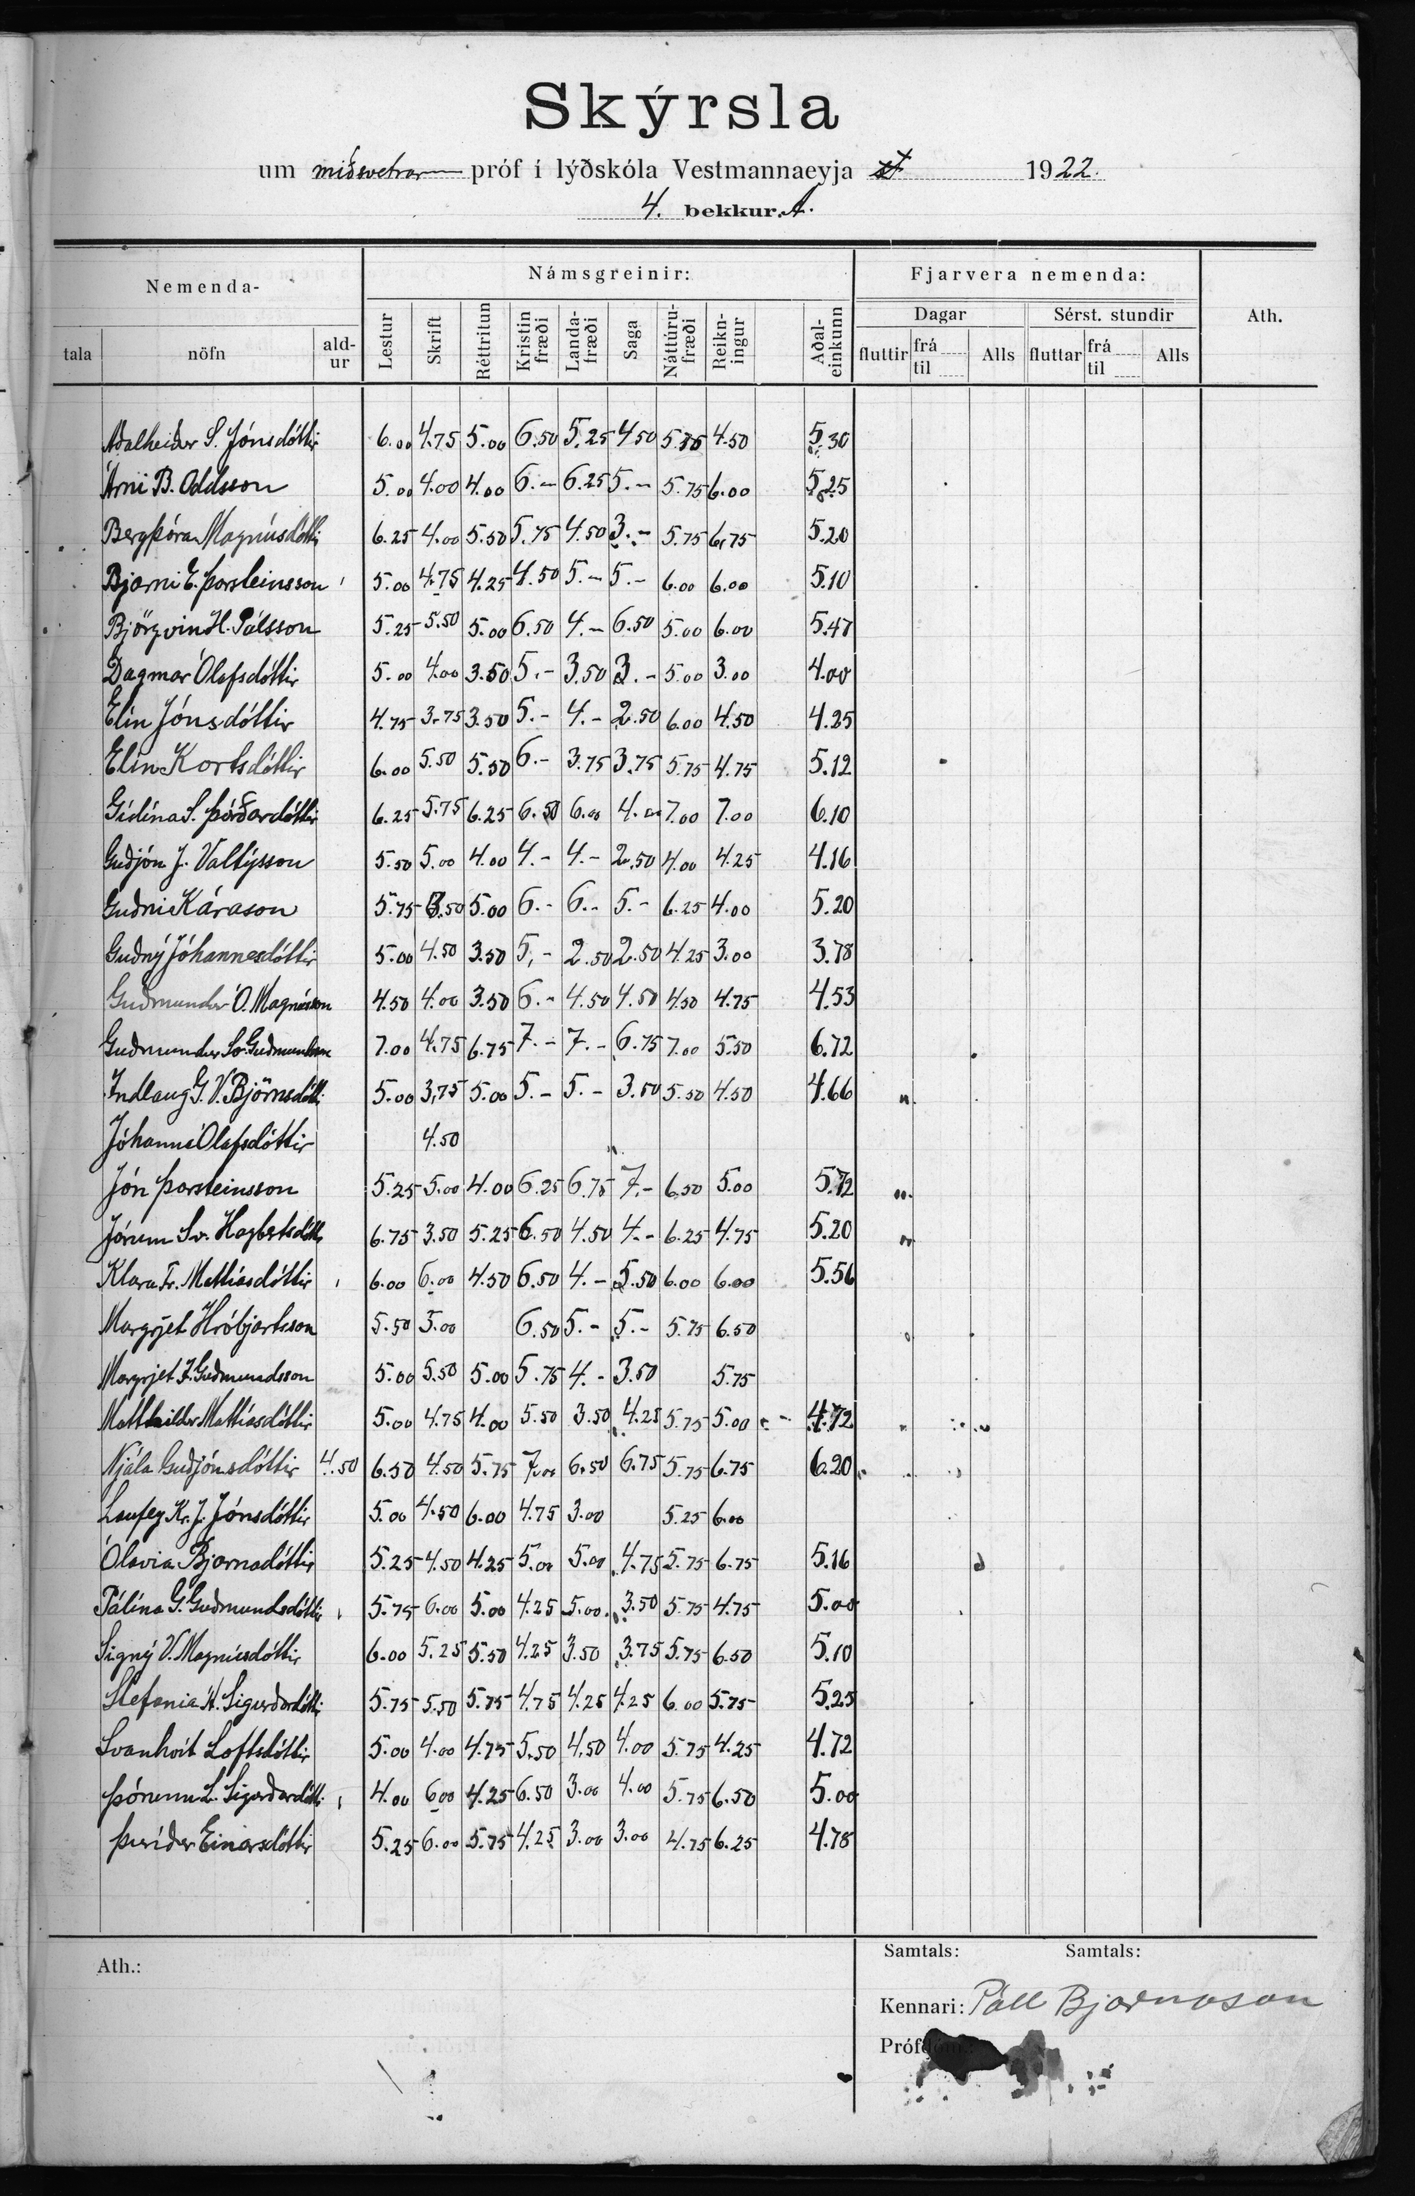 Skýrsla
um miðsvetrar próf í lýðskóla Vestmannaeyja 1922.
4. bekkur. A.
Nemenda-
Námsgreinir:
Fjarvera nemenda:
Ath.
Dagar
Sérst. stundir
tala nöfn ald-ur Lestur Skrift Réttritun Kristin fræði Landa-fræði Saga Náttúru-fræði Reikn-ingur Aðal-einkunn fluttir frá til Alls fluttar frá til Alls
Aðalheiður S. Jónsdóttir 6.00 4.75 5.00 6.50 5.25 4.50 5.75 4.50 5.30
Árni B. Oddsson 5.00 4.00 4.00 6.- 6.25 5.- 5.75 6.00 5.25
Bergþóra Magnúsdóttir 6.25 4.00 5.50 5.75 4.50 3.- 5.75 6.75 5.20
Bjarni E. Þorsteinsson 5.00 4.75 4.25 4.50 5.- 5.- 6.00 6.00 5.10
Björgvin H. Pálsson 5.25 5.50 5.00 6.50 4.- 6.50 5.00 6.00 5.47
Dagmar Ólafsdóttir 5.00 4.00 3.50 5.- 3.50 3.- 5.00 3.00 4.00
Elín Jónsdóttir 4.75 3.75 3.50 5.- 4.- 2.50 6.00 4.50 4.25
Elín Kortsdóttir 6.00 5.50 5.50 6.- 3.75 3.75 5.75 4.75 5.12
Gídína S. Þórðardóttir 6.25 5.75 6.25 6.50 6.00 4.00 7.00 7.00 6.10
Guðjón J. Valtýsson 5.50 5.00 4.00 4.- 4.- 2.50 4.00 4.25 4.16
Guðni Kárason 5.75 3.50 5.00 6.- 6.- 5.- 6.25 4.00 5.20
Guðný Jóhannesdóttir 5.00 4.50 3.50 5.- 2.50 2.50 4.25 3.00 3.78
Guðmundur Ó. Magnússon 4.50 4.00 3.50 6.- 4.50 4.50 4.50 4.75 4.53
Guðmundur Sv. Guðmundsson 7.00 4.75 6.75 7.- 7.- 6.75 7.00 5.50 6.72
Indlaug G. V. Björnsdótti 5.00 3.75 5.00 5.- 5.- 3.50 5.50 4.50 4.66
Jóhanna Ólafsdóttir 4.50
Jón Þorsteinsson 5.25 5.00 4.00 6.25 6.75 7.- 6.50 5.00 5.72
Jórunn Sv. Hagbertsdóttir 6.75 3.50 5.25 6.50 4.50 4.- 6.25 4.75 5.20
Klara Fr. Mattíasdóttir 6.00 6.00 4.50 6.50 4.- 5.50 6.00 6.00 5.56
Margrjet Hróbjartsson 5.50 5.00 6.50 5.- 5.- 5.75 6.50
Margrjet J. Guðmundsson 5.00 5.50 5.00 5.75 4.- 3.50 5.75
Matthildur Mattíasdóttir 5.00 4.75 4.00 5.50 3.50 4.25 5.75 5.00 4.72
Njála Guðjónsdóttir 4.50 6.50 4.50 5.75 7.00 6.50 6.75 5.75 6.75 6.20
Laufey Kr. J. Jónsdóttir 5.00 4.50 6.00 4.75 3.00 5.25 6.00
Ólavía Bjarnadóttir 5.25 4.50 4.25 5.00 5.00 4.75 5.75 6.75 5.16
Pálína G. Guðmundsdóttir 5.75 6.00 5.00 4.25 5.00 3.50 5.75 4.75 5.00
Signý V. Magnúsdóttir 6.00 5.25 5.50 4.25 3.50 3.75 5.75 6.50 5.10
Stefanía H. Sigurðardótti 5.75 5.50 5.75 4.75 4.25 4.25 6.00 5.75 5.25
Svanhvít Loftsdóttir 5.00 4.00 4.75 5.50 4.50 4.00 5.75 4.25 4.72
Þórunn L. Sigurðardótti 4.00 6.00 4.25 6.50 3.00 4.00 5.75 6.50 5.00
Þuríður Einarsdóttir 5.25 6.00 5.75 4.25 3.00 3.00 4.75 6.25 4.78
Ath.:
Samtals: Samtals:
Kennari: Páll Bjarnason